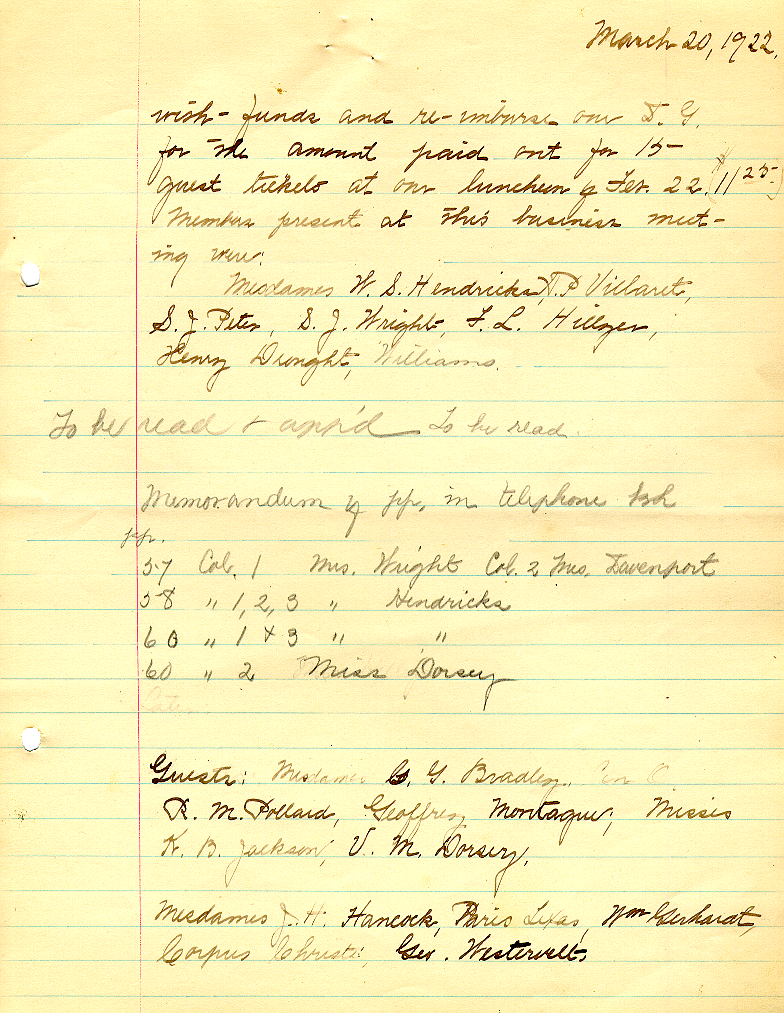 March 20, 1922.
wish- funds and re-imburse our T. G.
for the amount paid out for 15-
guest tickets at our luncheon of Feb. 22. (11 25)
Members present at this business meet-
ing were:
Mesdames W. S. Hendricks, T. P Villaret,
S. J. Peter, S. J. Wright, F. L. Hillyer,
Henry Drought, Williams.
To be read & app'd To be read.
Memorandum of pp. in telephone bk
pp.
57 Col. 1 Mrs. Wright Col. 2 Mrs. Davenport
58 " 1, 2, 3 " Hendricks
60 " 1 & 3 " "
60 " 2 Miss Dorsey
Guests: Mesdames G. G. Bradley,
R. M. Pollard, Geoffrey Montague; Misses
K. B. Jackson, V. M. Dorsey,
Mesdames J. H. Hancock, Paris Texas, Wm Gerhardt,
Corpus Christi, Geo. Westervelt.